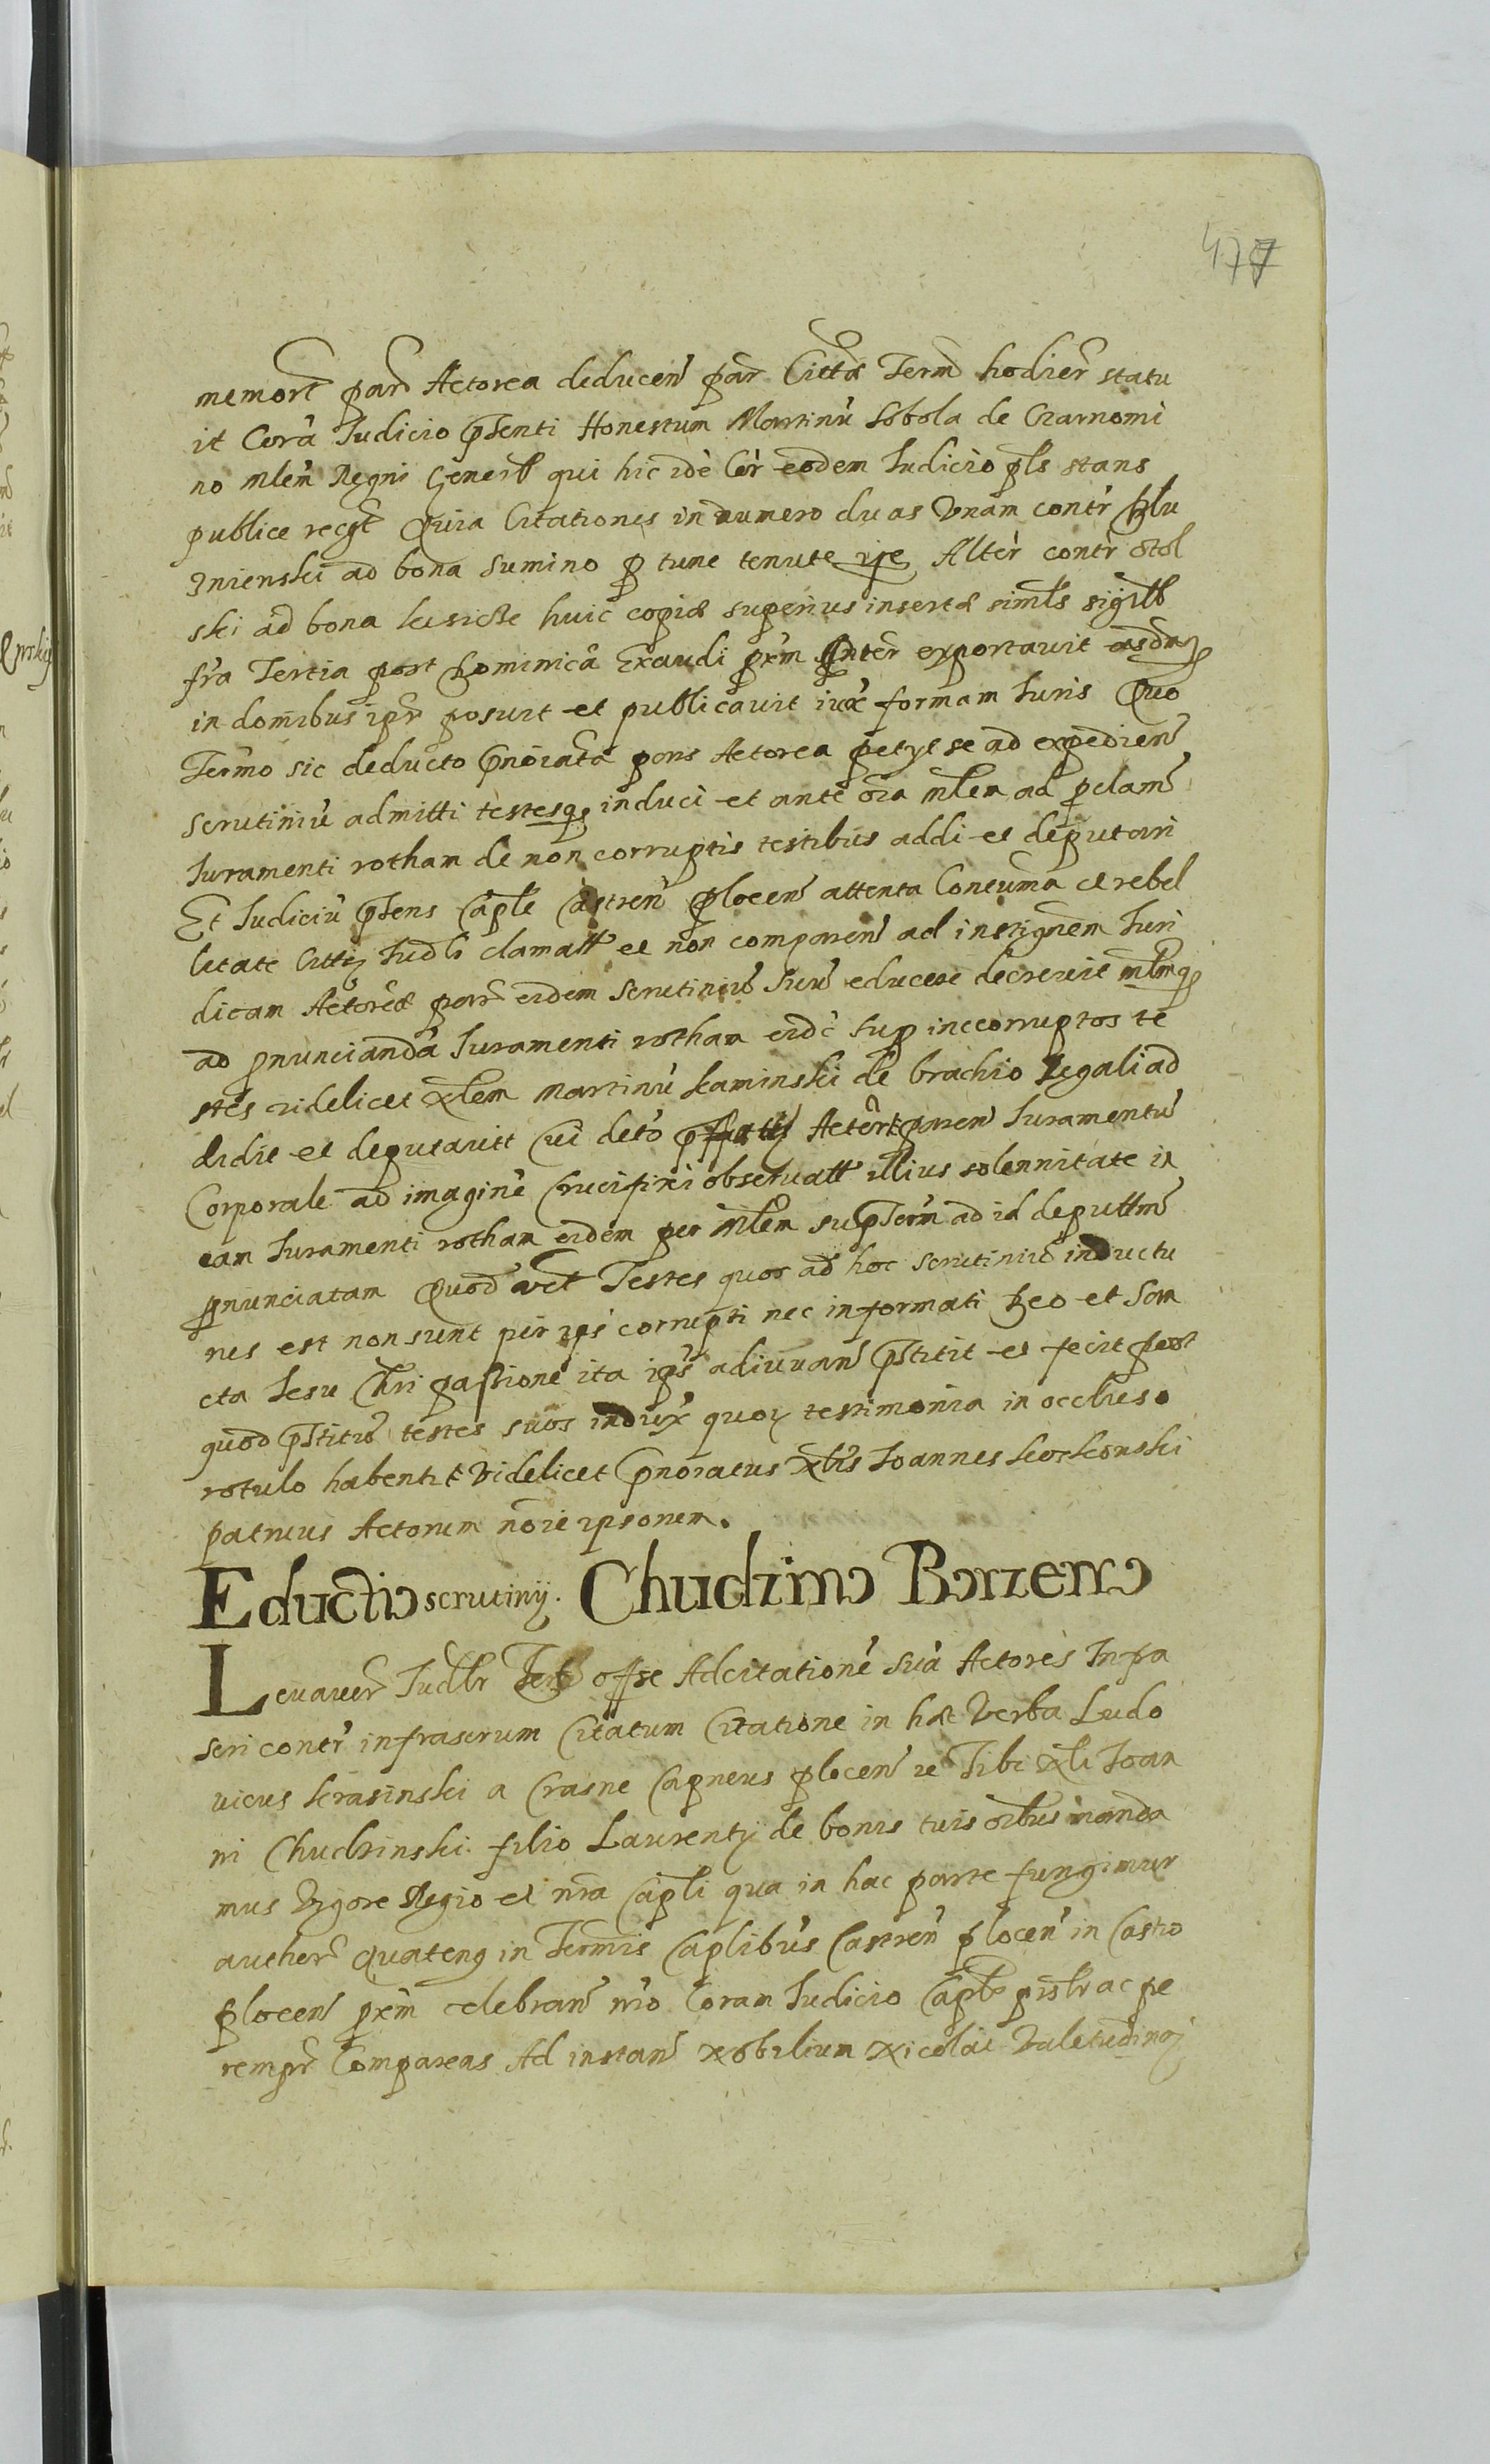 477
memort part Actorea deducen par Cittæ Term hodier statu
it Corā Iudicio p̄senti Honestum Martinū Sobola de Czarnomi
no Mlēm Regni Generl qui hic idē Cor eodem Iudicio pls stans
publice recgt Quia Citationes in numero duas Vnam contr Dlu
znienski ad bona Sumino p tunc tenute Alter contr
ski ad bona huic copiæ superius insertæ simls sigill
fra Tertia post Dominicā Exaudi pxm exportavit easdem
in domibus ipr posuit et publicavit iux formam Iuris Quo
Termo sic deducto p̄noiata pars Actorea petyt se ad expedien
scrutiniū admitti testesq induci et ante oīa Mlem ad pclam
Iuramenti rotham de non corruptis testibus addi et deputari
Et Iudiciū p̄sens Caple Castren plocen attenta Contuma et rebel
litate Citt Iudlr clamatt et non comparen ad instignem Iuri
dicam Actoreæ part eidem scrutiniū suū educere decrevit mlmq
ad pnuncianda Iuramenti rotham eidē sup inccorruptos te
stes videlicet Nblem Martinū Kaminski de brachio Regali ad
didit et deputavit Cui deto Actor paren Iuramentū
Corporale ad imaginē Crucifixi observatt illius solennitate in
eam Iuramenti rotham eidem per Mlem supserm ad id deputtm
pnunciatam Quod Testes quos ad hoc scrutiniū inductu
rus est non sunt per ips corrupti nec informati Deo et San
cta Iesu Chri passione ita ips adiuuan p̄stitit et fecit post
quod p̄stitū testes suos indux quoȝ testimonia in occluso
rotulo habentr Videlicet p̄noratus Nblis Ioannes Koskonski
patruus Actorum noīe ipsorum.
Eductio scrutinij. Chudzino Borzeno
Levaver Iudlr Term offse Adcitationē Suā Actores Infra
scri contr infrascrum Citatum Citatione in hæc Verba Ludo
vicus Krasinski a Crasne Capneus plocen ie Tibi Nbli Ioan
ni Chudzinski filio Laurentij de bonis tuis oībus manda
mus Vigore Regio et nrā Capli qua in hac parte fungimur
author Quatenq in Termis Caplibus Castren plocen in Castro
plocen pxm celebran nro Coram Iudicio Caple pislr ac pe
rempr Compareas Ad instan Nobilium Nicolai Valetudinaȝ